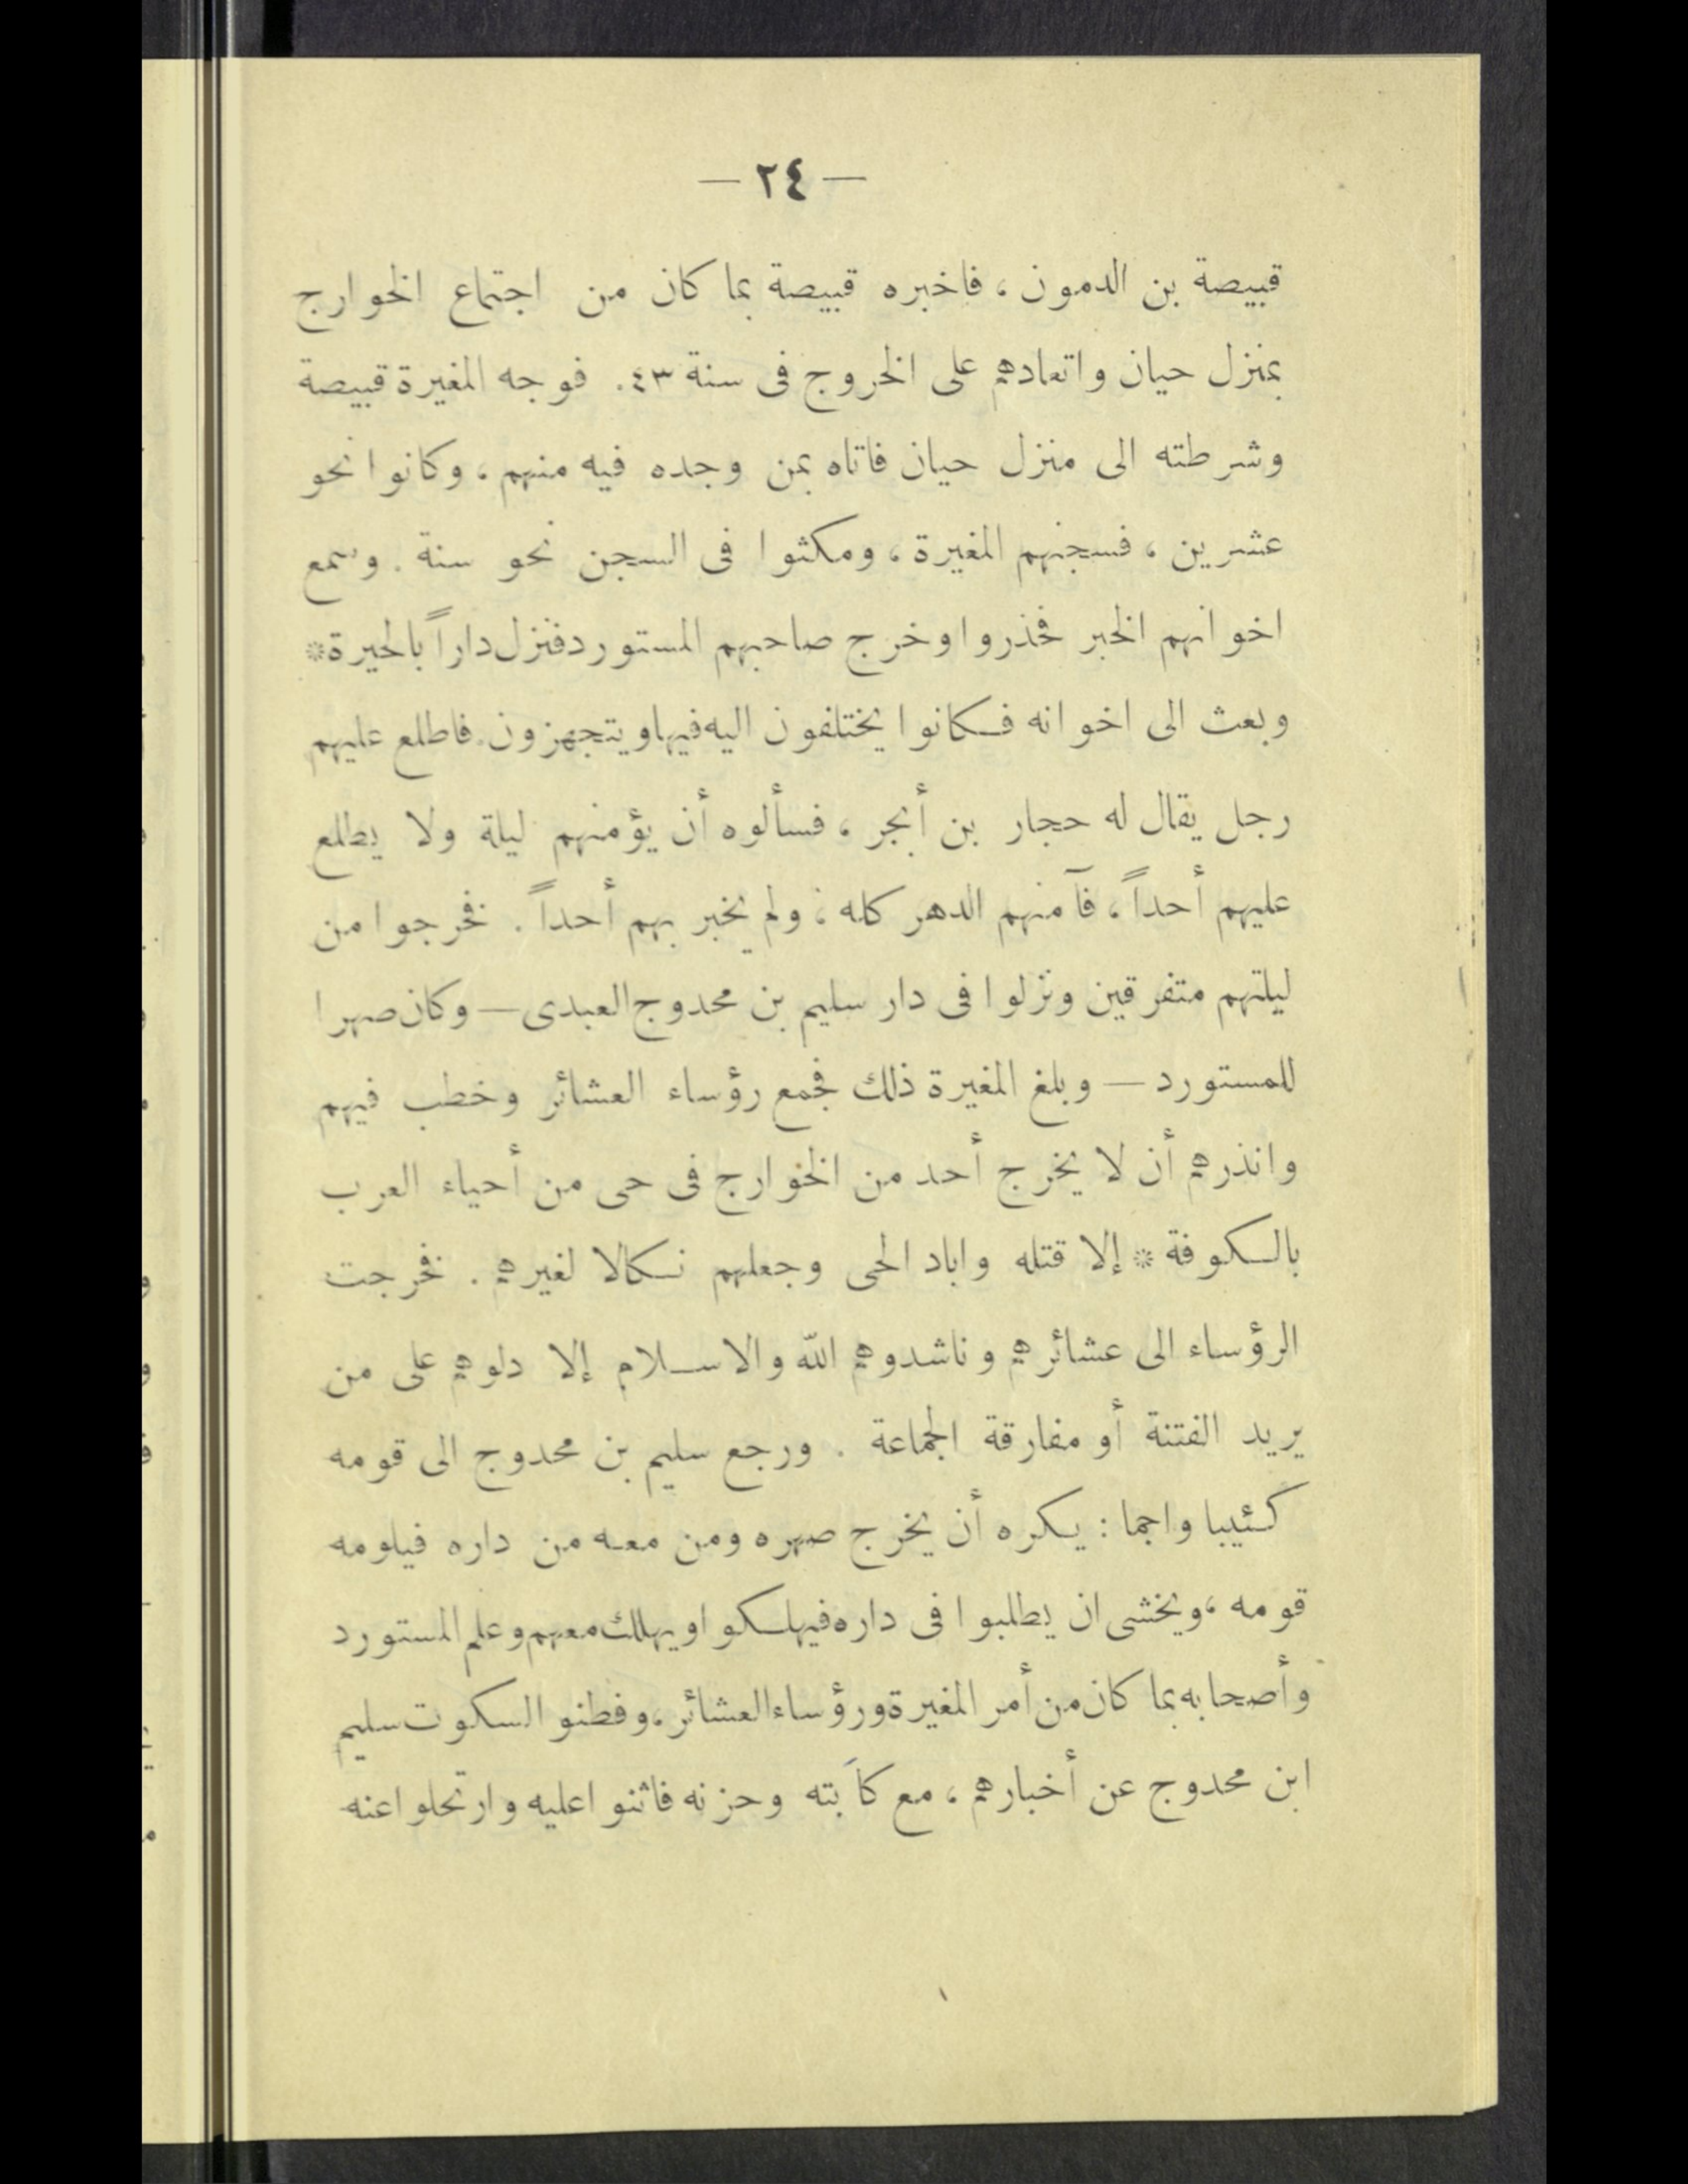 — ٢٤ —
قبيصة بن الدمون ، فاخبره قبيصة بما كان من اجتماع الخوارج
بمنزل حيان واتعادهم على الخروج فى سنة ٤٣. فوجه المغيرة قبيصة
وشرطته الى منزل حيان فاتاه بمن وجده فيه منهم ، وكانوا نحو
عشرين ، فسجنهم المغيرة ، ومكثوا فى السجن نحو سنة . وسمع
اخوانهم الخبر فحذروا وخرج صاحبهم المستورد فنزل داراً بالحيرة*
وبعث الى اخوانه فكانوا يختلفون اليه فيها ويتجهزون. فاطلع عليهم
رجل يقال له حجار بن أبجر ، فسألوه أن يؤمنهم ليلة ولا يطلع
عليهم أحداً ، فآمنهم الدهر كله ، ولم يخبر بهم أحداً . فخرجوا من
ليلتهم متفرقين ونزلوا فى دار سليم بن محدوج العبدى — وكان صهرا
للمستورد — وبلغ المغيرة ذلك فجمع رؤساء العشائر وخطب فيهم
وانذرهم أن لا يخرج أحد من الخوارج فى حى من أحياء العرب
بالكوفة * إلا قتله واباد الحى وجعلهم نكالا لغيرهم . فخرجت
الرؤساء الى عشائرهم وناشدوهم الله والاسلام إلا دلوهم على من
يريد الفتنة أو مفارقة الجماعة . ورجع سليم بن محدوج الى قومه
كئيبا واجما : يكره أن يخرج صهره ومن معه من داره فيلومه
قومه ، ويخشى ان يطلبوا فى داره فيهلكوا ويهلك معهم وعلم المستورد
وأصحابه بما كان من أمر المغيرة ورؤساء العشائر ، وفطنوا لسكوت سليم
ابن محدوج عن أخبارهم ، مع كآبته وحزنه فاثنوا عليه وارتحلوا عنه